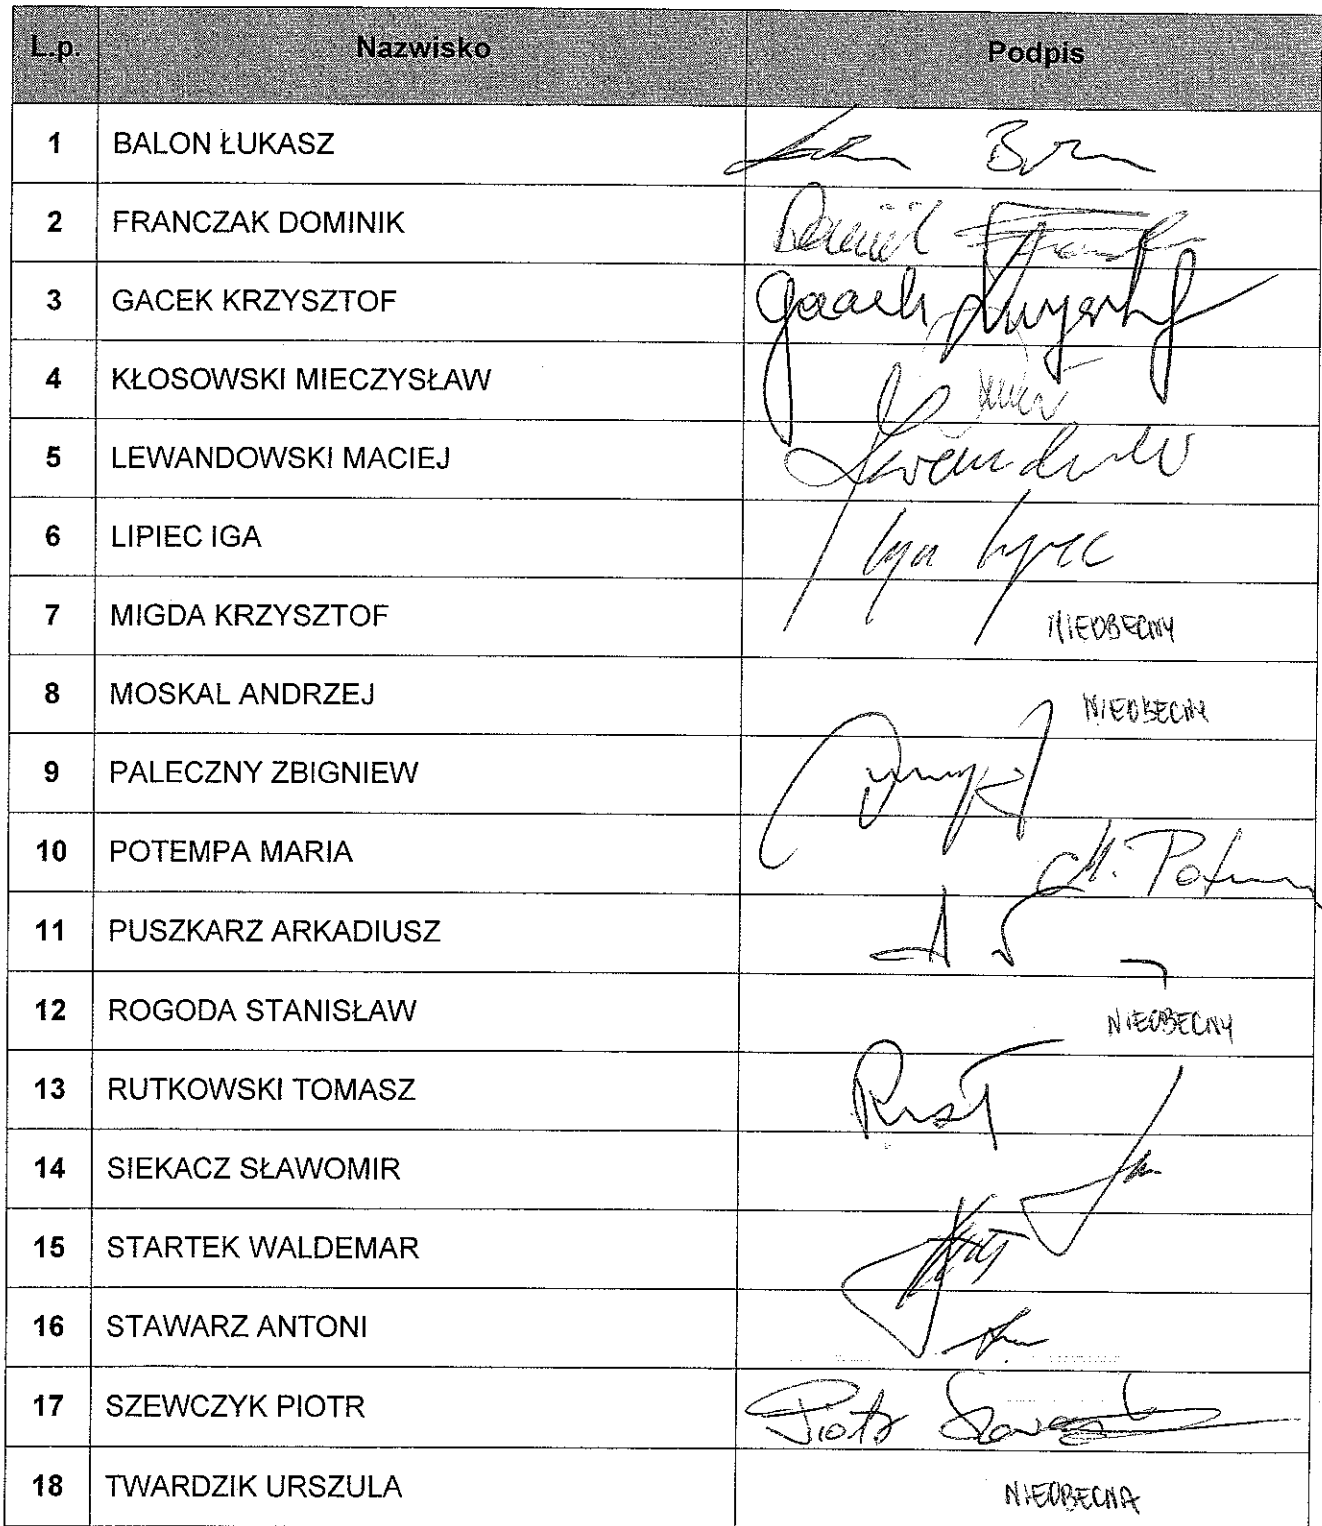 L.p. Nazwisko Podpis
1 BALON ŁUKASZ
2 FRANCZAK DOMINIK
3 GACEK KRZYSZTOF Gacek Krzysztof
4 KŁOSOWSKI MIECZYSŁAW
5 LEWANDOWSKI MACIEJ
6 LIPIEC IGA Iga Lipiec
7 MIGDA KRZYSZTOF NIEOBECNY
8 MOSKAL ANDRZEJ NIEOBECNY
9 PALECZNY ZBIGNIEW
10 POTEMPA MARIA M.
11 PUSZKARZ ARKADIUSZ
12 ROGODA STANISŁAW NIEOBECNY
13 RUTKOWSKI TOMASZ
14 SIEKACZ SŁAWOMIR
15 STARTEK WALDEMAR
16 STAWARZ ANTONI
17 SZEWCZYK PIOTR Piotr
18 TWARDZIK URSZULA NIEOBECNA